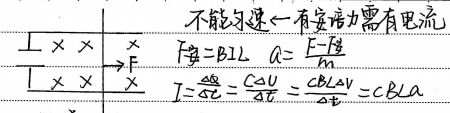 不能匀速←有安培力需有电流
F安=BIL a=\frac{F-F安}{m}
→F
I=\frac{ΔQ}{Δt}=\frac{CΔU}{Δt}=\frac{CBLΔV}{Δt}=CBLa